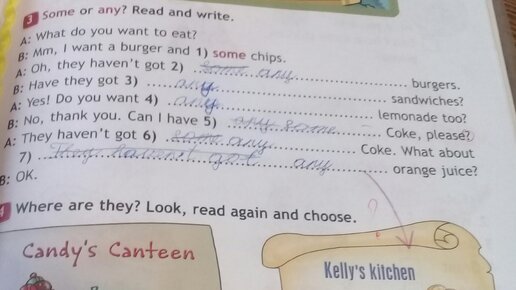 3 Some or any? Read and write.
A: What do you want to eat?
B: Mm, I want a burger and 1) some chips.
A: Oh, they haven't got 2) some any burgers.
B: Have they got 3) any sandwiches?
A: Yes! Do you want 4) any lemonade too?
B: No, thank you. Can I have 5) any some Coke, please?
A: They haven't got 6) some any Coke. What about
7) They haven't got any orange juice?
B: OK.
4 Where are they? Look, read again and choose.
?
Candy's Canteen
Kelly's kitchen